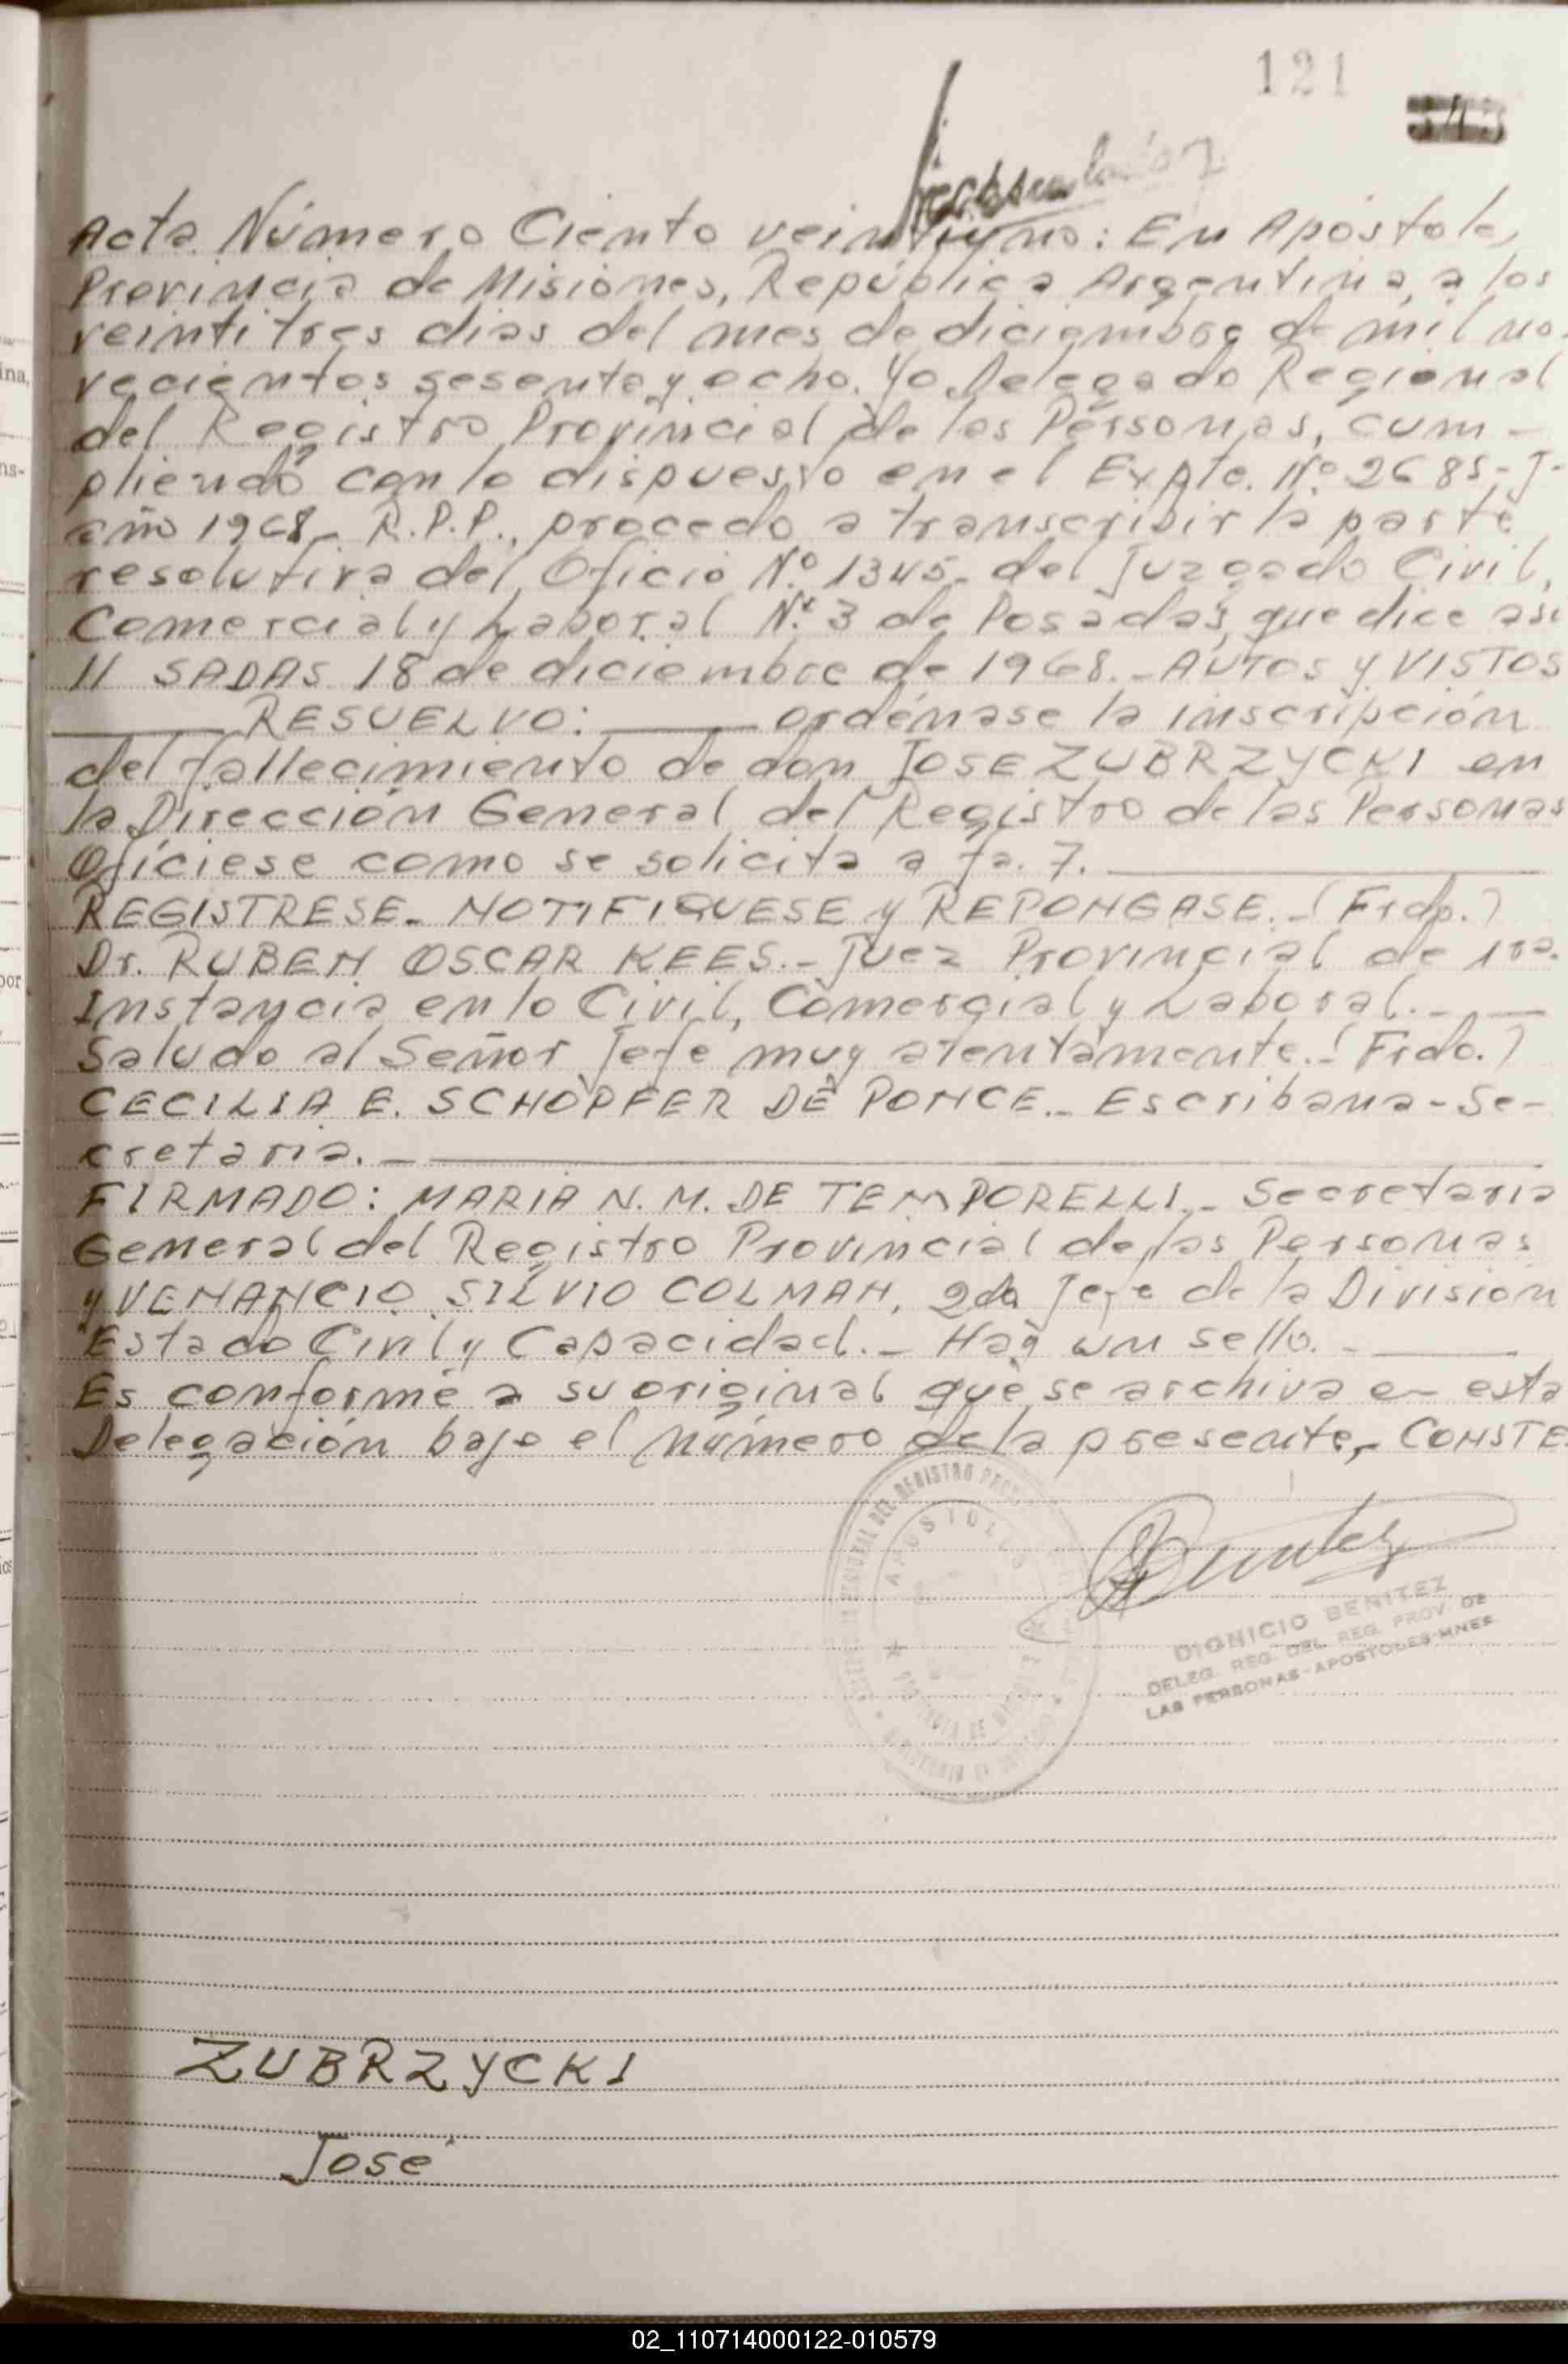 121
Acta Número Ciento veintiuno: En Apóstoles,
Provincia de Misiones, República Argentina, a los
veintitres dias del mes de diciembre de mil no-
vecientos sesenta y ocho. Yo Delegado Regional
del Registro Provincial de las Personas, cum-
pliendo con lo dispuesto en el Expte. Nº 2685-J-
año 1968- R.P.P., procedo a transcribir la parte
resolutiva del Oficio Nº 1345- del Juzgado Civil,
Comercial y Laboral Nº 3 de Posadas, que dice asi
// SADAS 18 de diciembre de 1968.- AUTOS y VISTOS
RESUELVO: ordénase la inscripción
del fallecimiento de don JOSE ZUBRZYCKI en
la Dirección General del Registro de las Personas
Ofíciese como se solicita a fs. 7.
REGISTRESE- NOTIFIQUESE y REPONGASE.-(Frdo.)
Dr. RUBEN OSCAR KEES.- Juez Provincial de 1ra.
Instancia en lo Civil, Comercial y Laboral.-
Saludo al Señor Jefe muy atentamente.-(Frdo.)
CECILIA E. SCHOPFER DE PONCE.- Escribana-Se-
cretaria.-
FIRMADO: MARIA N. M. DE TEMPORELLI.- Secretaria
General del Registro Provincial de las Personas
y VENANCIO SILVIO COLMAN, 2do Jefe de la División
Estado Civil y Capacidad.- Hay un sello.-
Es conforme a su original que se archiva en esta
Delegación bajo el número de la presente,- CONSTE
APOSTOLES
Benitez
DIONICIO BENITEZ
DELEG. REG. DEL REG. PROV. DE
LAS PERSONAS-APOSTOLES-MNES
ZUBRZYCKI
José
02_110714000122-010579